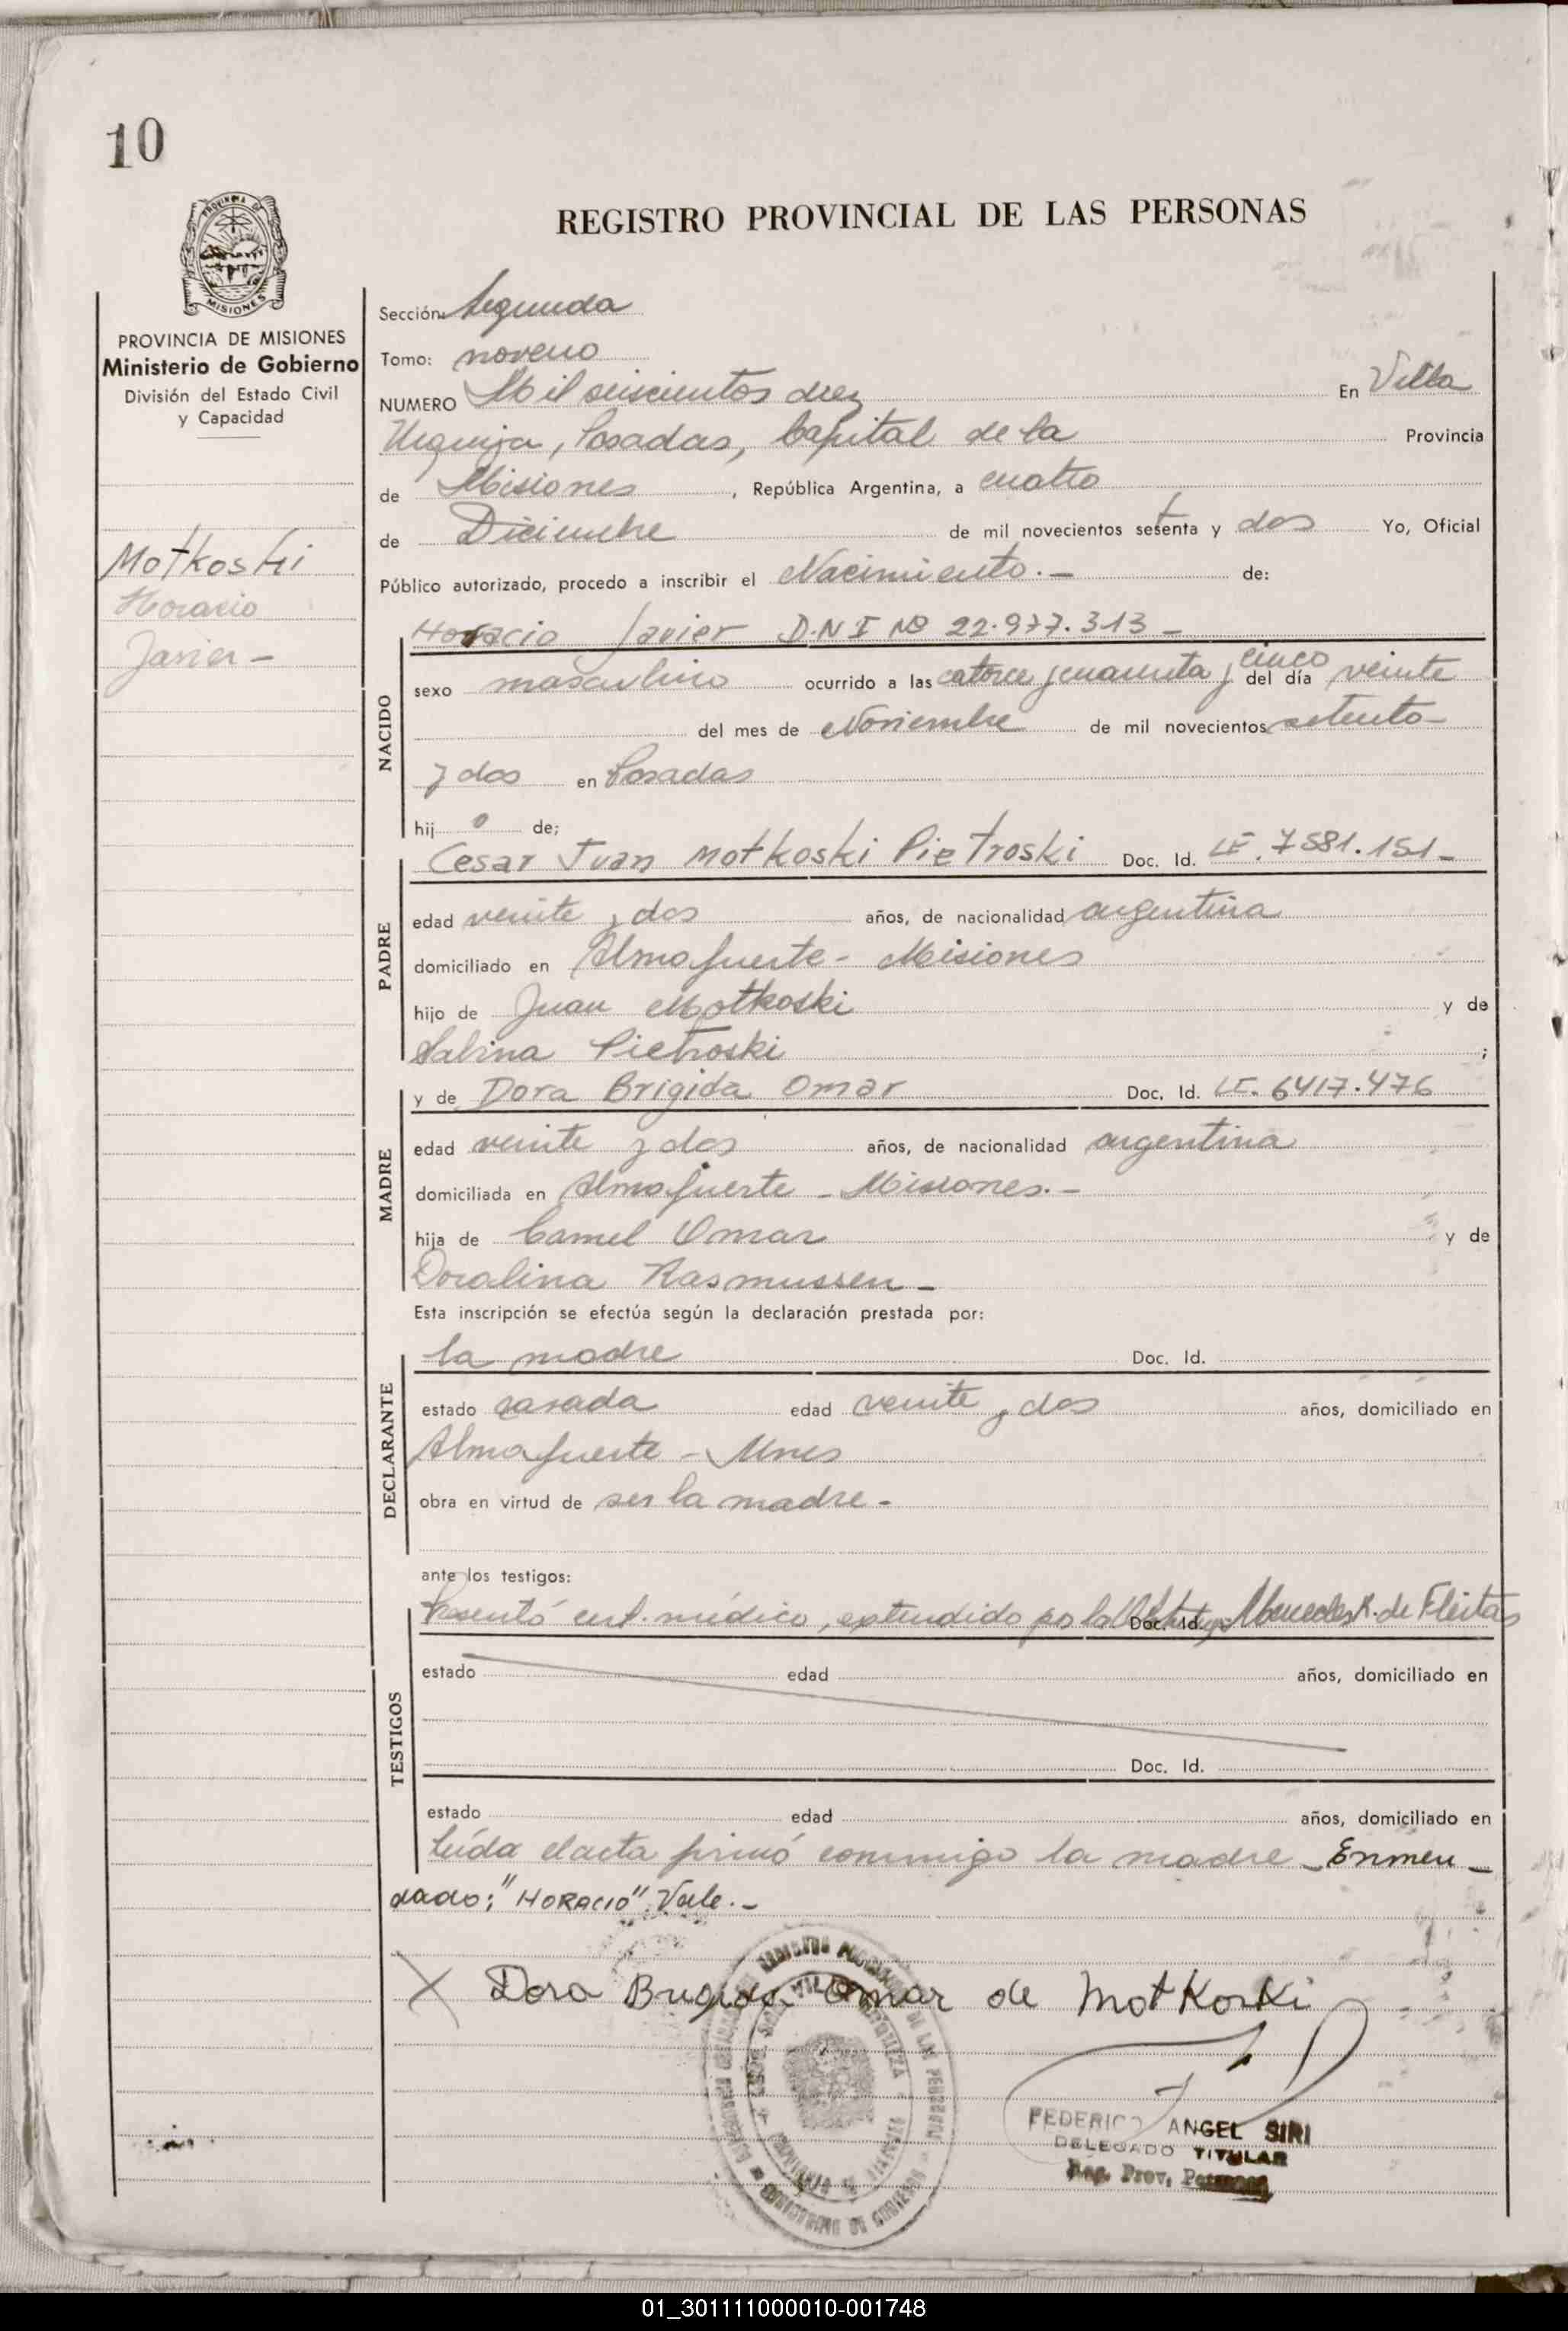 10
REGISTRO PROVINCIAL DE LAS PERSONAS
PROVINCIA DE MISIONES
MISIONES
PROVINCIA DE MISIONES
Ministerio de Gobierno
División del Estado Civil
y Capacidad
Motkoski
Horacio
Javier -
Sección: Segunda
Tomo: noveno
NUMERO Mil seiscientos diez En Villa
Urquiza, Posadas, Capital de la Provincia
de Misiones, República Argentina, a cuatro
de Diciembre de mil novecientos setenta y dos Yo, Oficial
Público autorizado, procedo a inscribir el Nacimiento.- de:
Horacio Javier D.N I Nº 22.977.313 -
NACIDO
sexo masculino ocurrido a las catorce y cuarenta y cinco del día veinte
del mes de Noviembre de mil novecientos setenta
y dos en Posadas
hij o de;
Cesar Juan Motkoski Pietroski Doc. Id. LE. 7581.151-
PADRE
edad veinte y dos años, de nacionalidad argentina
domiciliado en Almafuerte - Misiones
hijo de Juan Motkoski y de
Sabina Pietroski ;
y de Dora Brigida Omar Doc. Id. LC. 6417.476
MADRE
edad veinte y dos años, de nacionalidad argentina
domiciliada en Almafuerte - Misiones.-
hija de Camel Omar y de
Doralina Rasmussen -
Esta inscripción se efectúa según la declaración prestada por:
la madre Doc. Id.
DECLARANTE
estado casada edad veinte y dos años, domiciliado en
Almafuerte - Mnes
obra en virtud de ser la madre -
ante los testigos:
Presentó cert. médico, extendido por la Doc. Id. Mercedes R. de Fleitas
TESTIGOS
estado edad años, domiciliado en
Doc. Id.
estado edad años, domiciliado en
Leída el acta firmó conmigo la madre - Enmen -
dado: "HORACIO" Vale.-
X Dora Brigida Omar de Motkoski
FEDERICO ANGEL SIRI
DELEGADO TITULAR
Reg. Prov. Personas
01_301111000010-001748